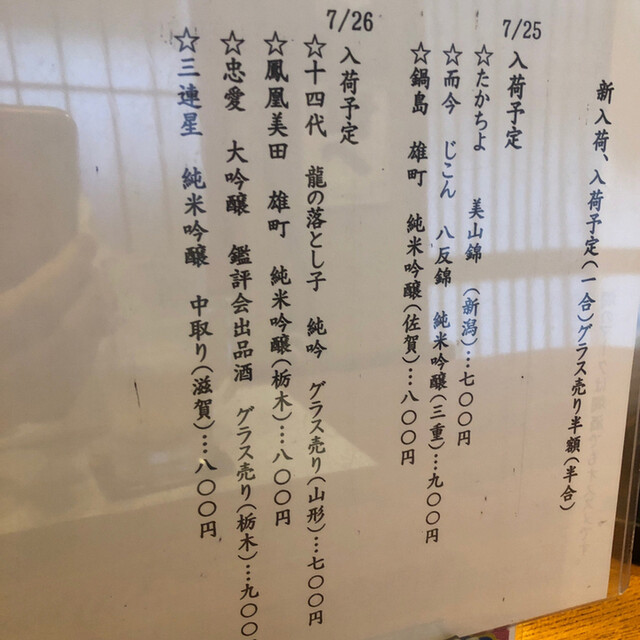 新入荷、入荷予定(一合)グラス売り半額(半合)
7/25 入荷予定
☆たかちよ 美山錦 (新潟)…七〇〇円
☆而今 じこん 八反錦 純米吟醸(三重)…九〇〇円
☆鍋島 雄町 純米吟醸(佐賀)…八〇〇円
7/26 入荷予定
☆十四代 龍の落とし子 純吟 グラス売り(山形)…七〇〇円
☆鳳凰美田 雄町 純米吟醸(栃木)…八〇〇円
☆忠愛 大吟醸 鑑評会出品酒 グラス売り(栃木)…九〇〇
☆三連星 純米吟醸 中取り(滋賀)…八〇〇円